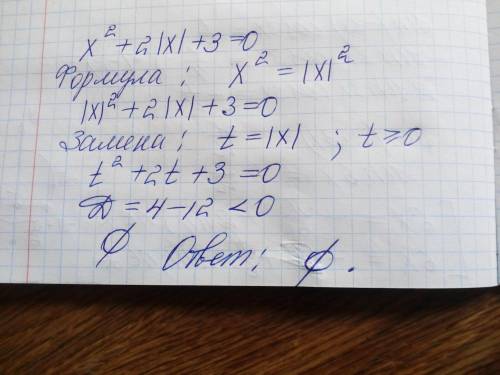 x² + 2|x| + 3 = 0
Формула: x² = |x|²
|x|² + 2|x| + 3 = 0
Замена: t = |x| ; t ≥ 0
t² + 2t + 3 = 0
D = 4 - 12 < 0
∅ Ответ: ∅.